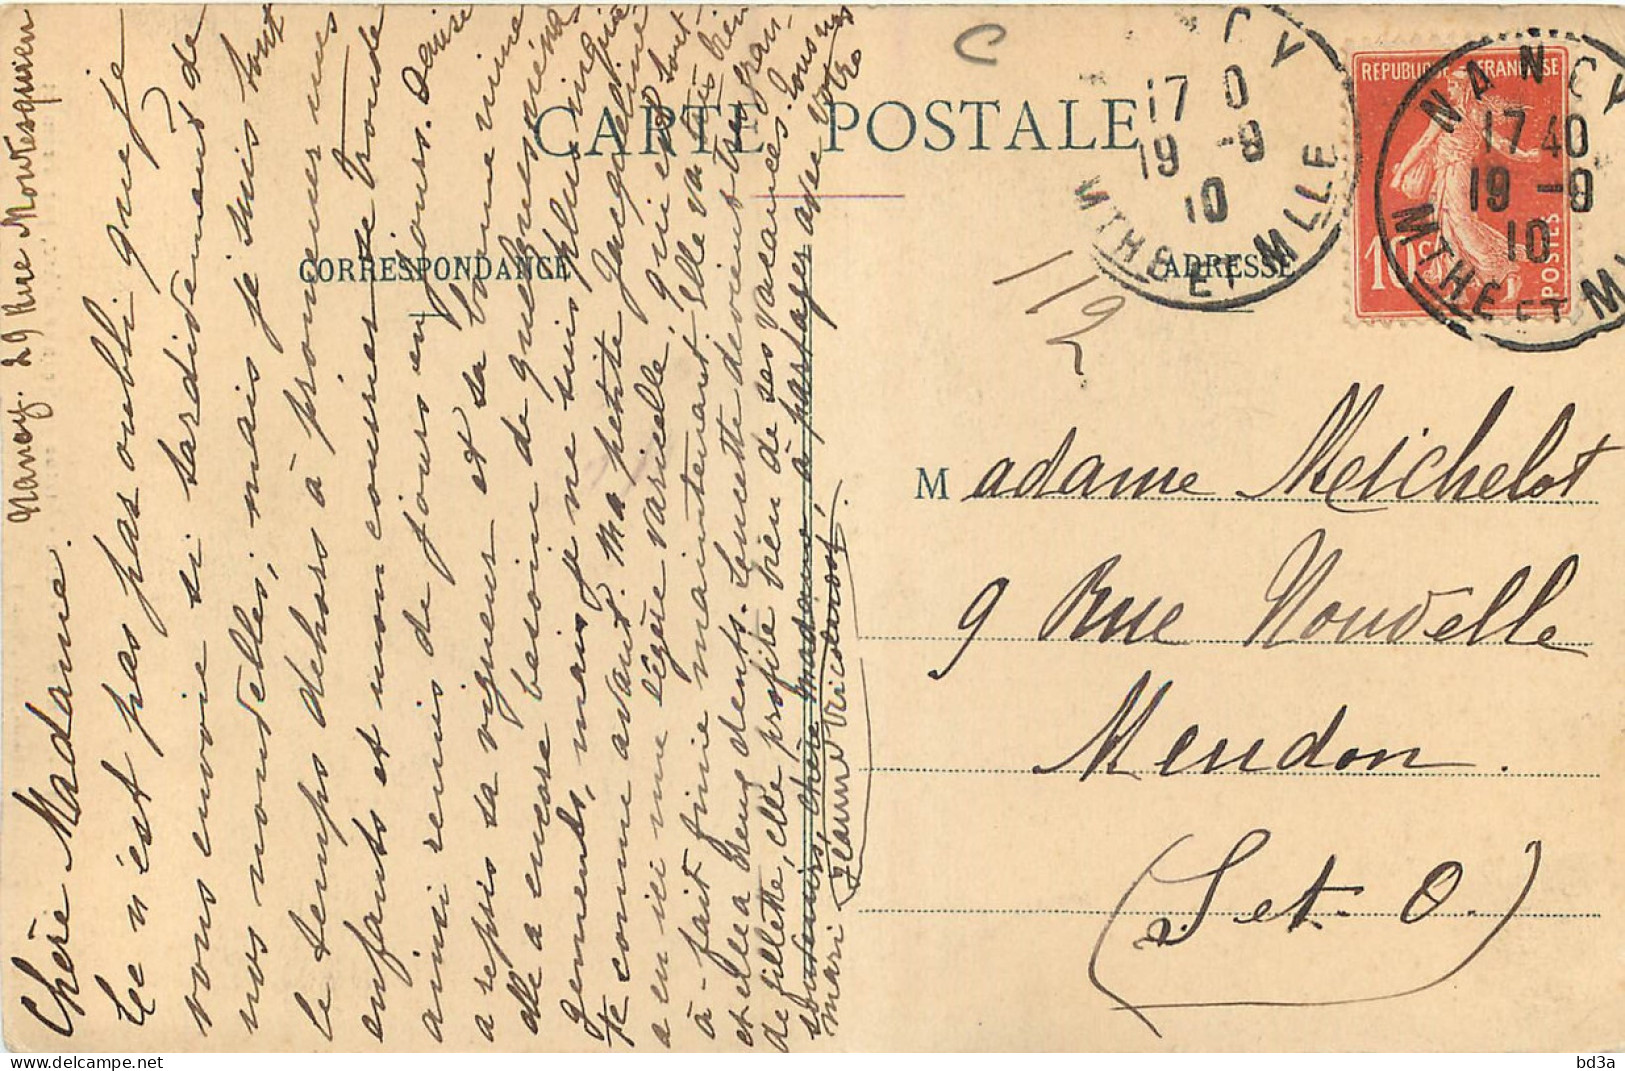 CARTE POSTALE
CORRESPONDANCE
ADRESSE
REPUBLIQUE FRANÇAISE
10 C
POSTES
NANCY
17 40
19 -9
10
MTHE ET M
CY
17 0
19 -9
10
MTHE ET MLLE
112
C
Madame Meichelot
9 Rue Nouvelle
Meudon.
(S. et O.)
Nancy. 29 Rue Montesquieu
Chère Madame.
Ce n'est pas oubli que je
n'est pas par si tardivement de
vous envoie
nos nouvelles; mais je suis tout
le temps dehors à promener mes
enfants et mon courrier se trouve
ainsi remis de jours en jours. Denise
a repris sa vigueur et sa bonne mine
elle a encore besoin de quelques ména
gements, mais je ne suis plus inquiè
te comme avant. Ma petite Jacqueline
a eu ici une légère varicelle, qui est tout
à-fait finie maintenant. Elle va très bien
et elle a deux dents. Loucette devient très gran-
de fillette, elle profite bien de ses vacances. Tous nos
souvenirs, chère Madame, à partager avec votre
mari
Jeanne
bd3a